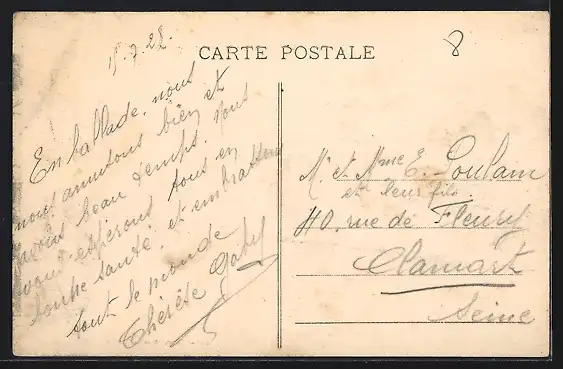 15.7.28.
CARTE POSTALE
8
En ballade, nous
nous amusons bien et
avons beau temps. nous
vous espérons tous en
bonne santé, et embrassons
tout le monde
Thérèse Gaby
Mr et Mme E. Poulain
et leur fils
40, rue de Fleury
Clamart
Seine